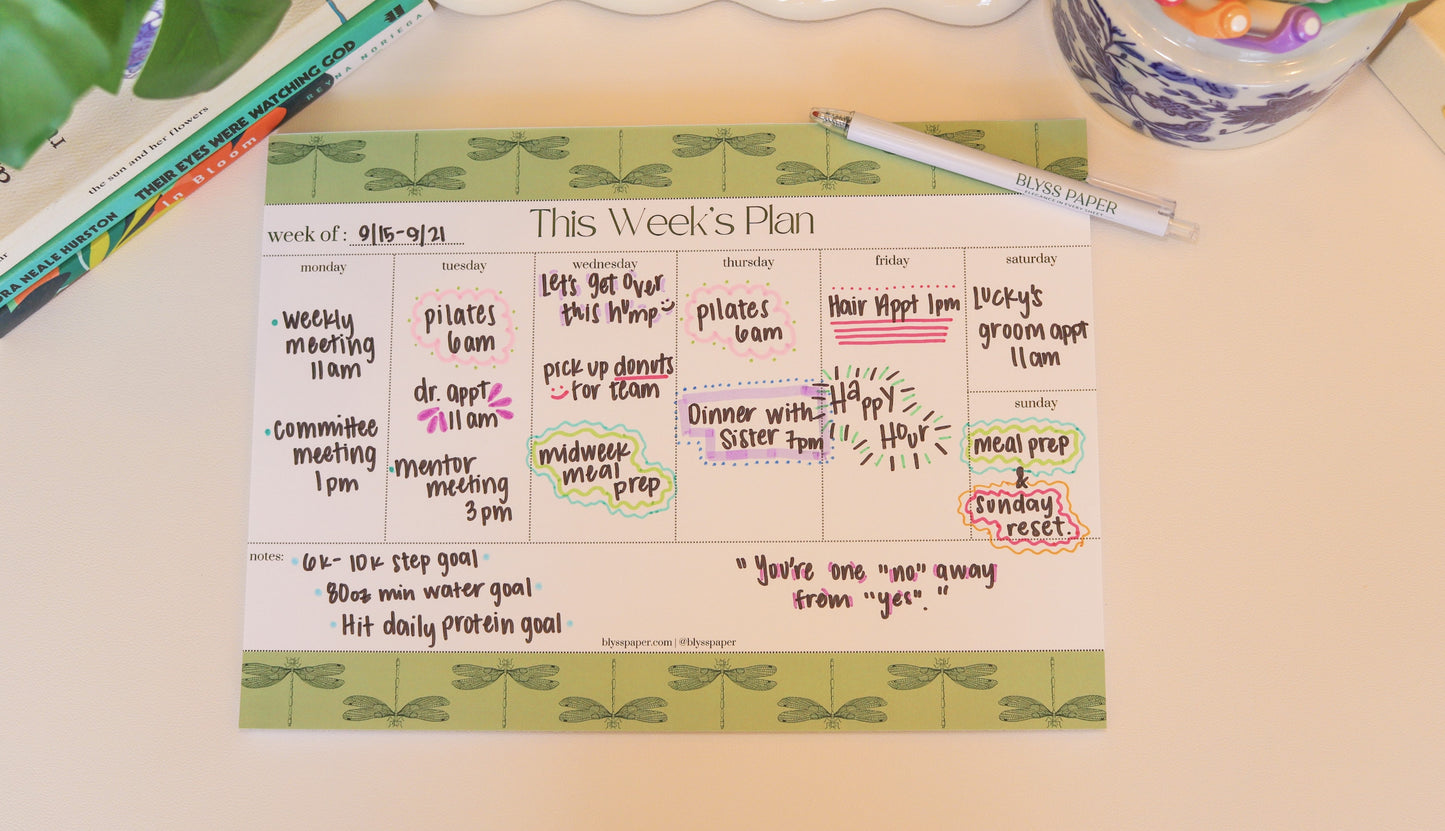 the sun and her flowers
ORA NEALE HURSTON THEIR EYES WERE WATCHING GOD
In Bloom REYNA NORIEGA
BLYSS PAPER
ELEGANCE IN EVERY SHEET
week of : 9/15-9/21
This Week's Plan
monday
• weekly
meeting
11am
• committee
meeting
1pm
tuesday
pilates
6am
dr. appt
11am
• mentor
meeting
3pm
wednesday
Let's get over
this hump
pick up donuts
for team
midweek
meal
prep
thursday
pilates
6am
Dinner with
Sister 7pm
friday
Hair Appt 1pm
Happy
Hour
saturday
Lucky's
groom appt
11am
sunday
meal prep
&
sunday
reset.
notes:
• 6k- 10k step goal •
• 80oz min water goal •
• Hit daily protein goal •
" You're one "no" away
from "yes". "
blysspaper.com | @blysspaper